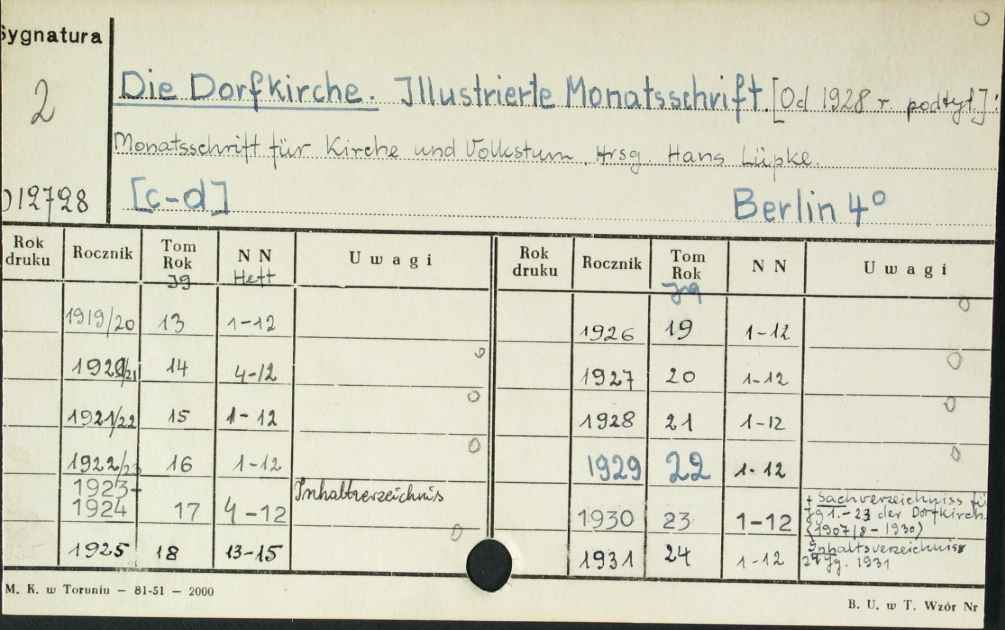 Sygnatura
2
Die Dorfkirche. Illustrierte Monatsschrift. [Od 1928 r. podtyt.]:
Monatsschrift für Kirche und Volkstum. Hrsg. Hans Lüpke.
012728 [c-d] Berlin 4°
Rok druku Rocznik Tom Rok Jg N N Heft Uwagi Rok druku Rocznik Tom Rok Jg N N Uwagi
1919/20 13 1-12 1926 19 1-12
1920/21 14 4-12 1927 20 1-12
1921/22 15 1-12 1928 21 1-12
1922/23 16 1-12 1929 22 1-12
1923-1924 17 4-12 Inhaltverzeichnis 1930 23 1-12 + Sachverzeichniss fü Jg 1.-23 der Dorfkirch. (1907/8-1930)
1925 18 13-15 1931 24 1-12 Inhaltsverzeichniss 24 Jg. 1931
M. K. w Toruniu — 81-51 — 2000
B. U. w T. Wzór Nr